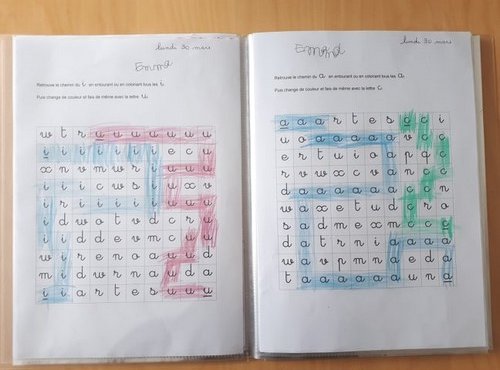 lundi 30 mars
Emma
Retrouve le chemin du i en entourant ou en coloriant tous les i.
Puis change de couleur et fais de même avec la lettre u.
w t r u u u u u u u
i i i i i i i e c u
x n v m w r i u u u
i i i c w s i u x v
i r i i i i i u u u
i d w o t v d c r u
i i d d e v m c u u
w i r e n o a u u d
m i d w r n a u d a
i i a r t e s u u u
lundi 30 mars
Emma
Retrouve le chemin du a en entourant ou en coloriant tous les a.
Puis change de couleur et fais de même avec la lettre c.
a a a r t e s c c i
u o a a a a a v c c
e r t u i o a p q c
d a a a a a a c c n
w a x e t u d c r o
d a t r n i a a a a
w a v p m n a e d a
t a a a a a a u n a